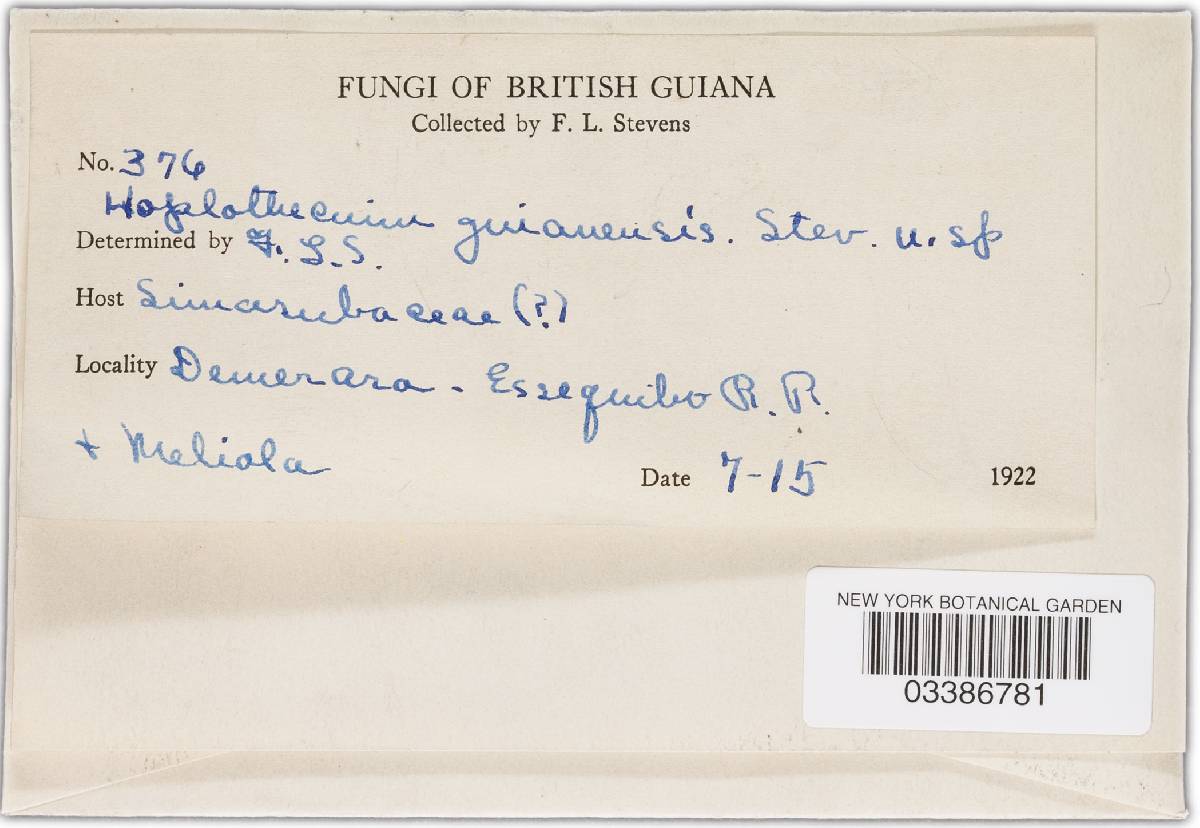 FUNGI OF BRITISH GUIANA
Collected by F. L. Stevens
No. 376
Hoplothecium guianensis. Stev. n. sp
Determined by F. L. S.
Host Simarubaceae (?)
Locality Demerara - Essequibo R. R.
+ Meliola
Date 7-15 1922
NEW YORK BOTANICAL GARDEN
03386781